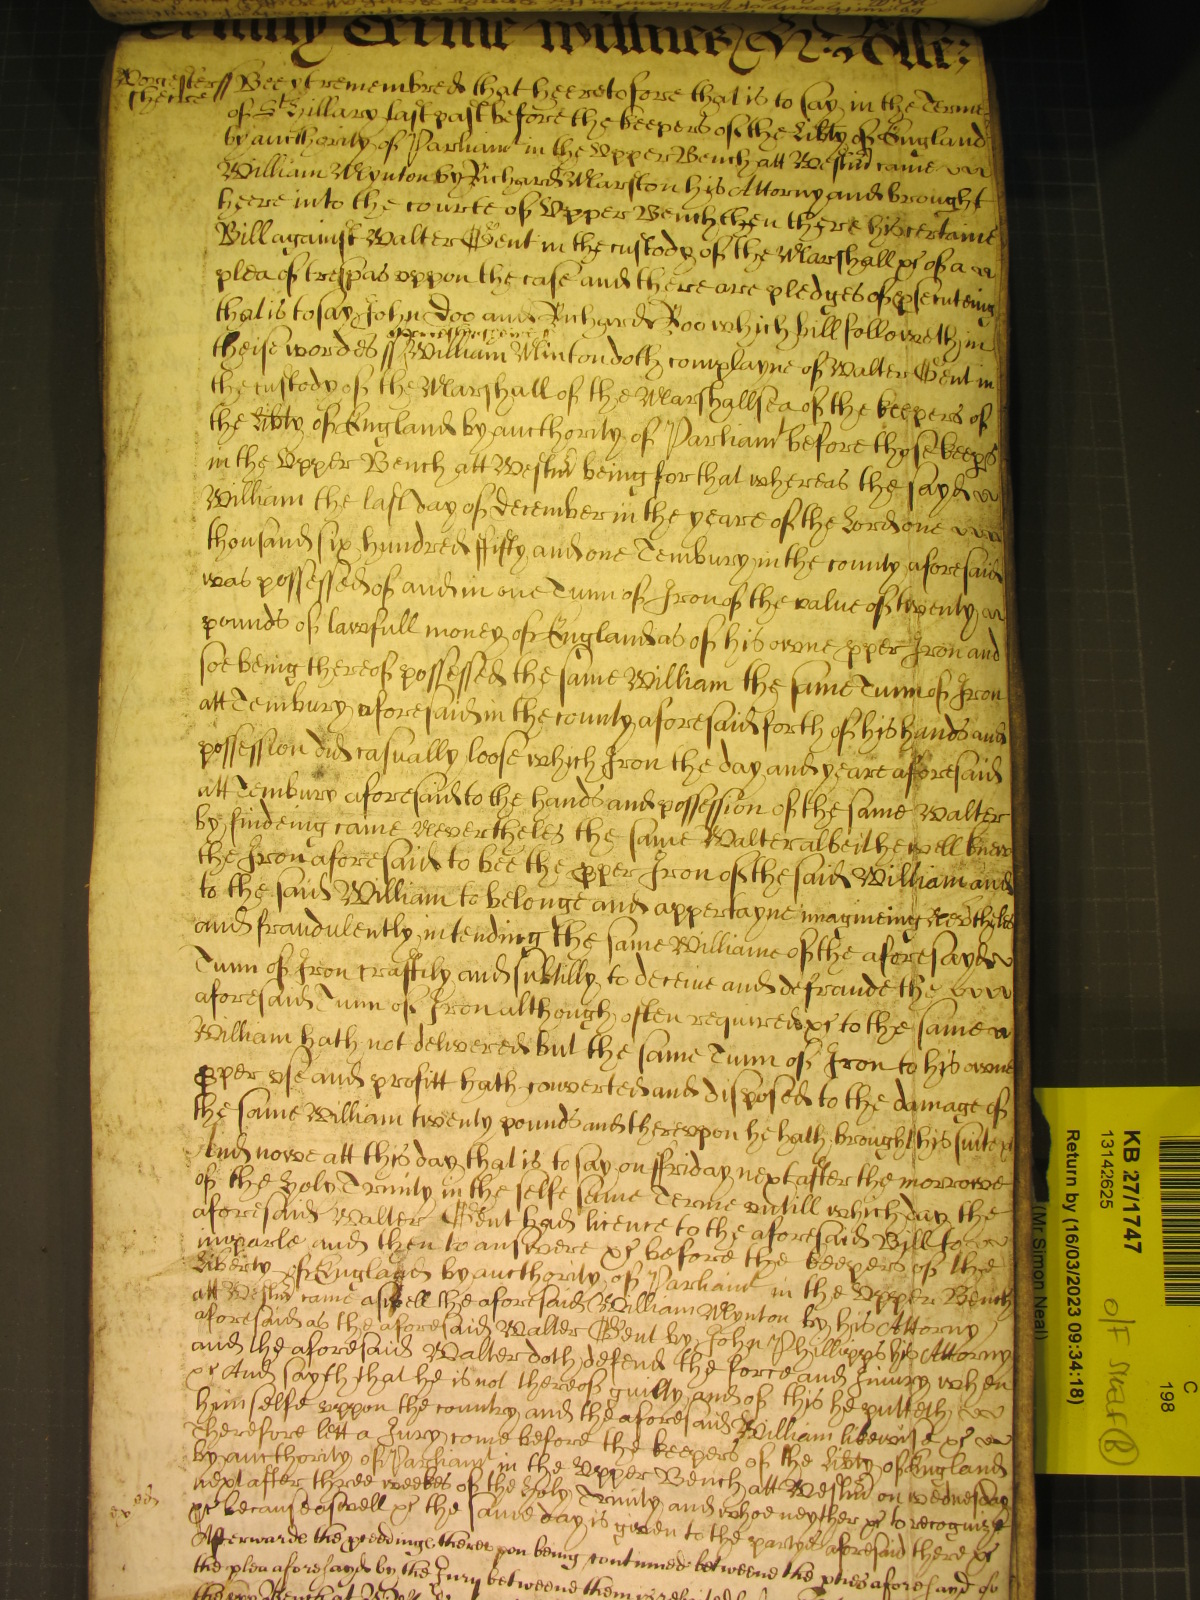 Trinity Terme wittnes H: Rolle:
Worcester ss Bee yt remembred that heeretofore that is to say in the Terme
sheire
of St Hillary last past before the keepers of the Libty of England
by aucthority of Parliamt in the Vpper Bench att Westmr came
William Mynton by Richard Marston his Attorny and brought
heere into the courte of Vpper Bench then there his certaine
Bill against Walter Gent in the custody of the Marshall &c of a
plea of trespas vppon the case and there are pledges of psecuteing
that is to say John Doo and Richard Roo which bill followeth in
theise wordes ss William Minton doth complayne of Walter Gent in
the custody of the Marshall of the Marshallsea of the keepers of
the Libty of England by aucthority of Parliamt before those keeps
in the Vpper Bench att Westmr being for that whereas the sayd
William the last day of december in the yeare of the Lord one
thousand six hundred ffifty and one Tembury in the county aforesaid
was possessed of and in one Tunn of Iron of the value of twenty
pounds of lawfull money of England as of his owne pper Iron and
soe being thereof possessed the same William the same Tunn of Iron
att Tembury aforesaid in the county aforesaid forth of his hands and
possession did casually loose which Iron the day and yeare aforesaid
att Tembury aforesaid to the hands and possession of the same Walter
by findeing came Nevertheles the same Walter albeit he well knew
the Iron aforesaid to bee the pper Iron of the said William and
to the said William to belonge and appertayne imagineing Nevthels
and fraudulently intending the same Williame of the aforesayd
Tunn of Iron craftily and subtilly to deceive and defraude the
aforesaid Tunn of Iron although often required &c to the same
William hath not delivered but the same Tunn of Iron to his owne
pper vse and profitt hath converted and disposed to the damage of
the same William twenty pounds and therevpon he hath brought his suite &c
And nowe att this day that is to say on ffriday next after the morrowe
of the Holy Trinity in the selfe same Terme vntill which day the
aforesaid Walter Gent had licence to the aforesaid Bill to
imparle and then to answere &c before the keepers of the
Liberty of England by aucthority of Parliamt in the Vpper Bench
att Westmr came aswell the aforesaid William Mynton by his Attorny
aforesaid as the aforesaid Walter Gent by John Phillipps his Attorny
and the aforesaid Walter doth defend the force and Iniury when
&c And sayth that he is not thereof guilty and of this he putteth
himselfe vppon the country and the aforesaid William likewise &c
Therefore lett a Jury come before the keepers of the Libty of England
by aucthority of Parliamt in the Vpper Bench att Westmr on wednesday
next after three weekes of the Holy Trinity and whoe neyther &c to recognize
&c because aswell &c the same day is given to the partyes aforesaid there &c
Afterwards the pceedings therevpon being continued betweene the pties aforesayd of
the plea aforesayd by the Jury betweene them
KB 27/1747
13142625
Return by (16/03/2023 09:34:18)
(Mr Simon Neal)
C
198